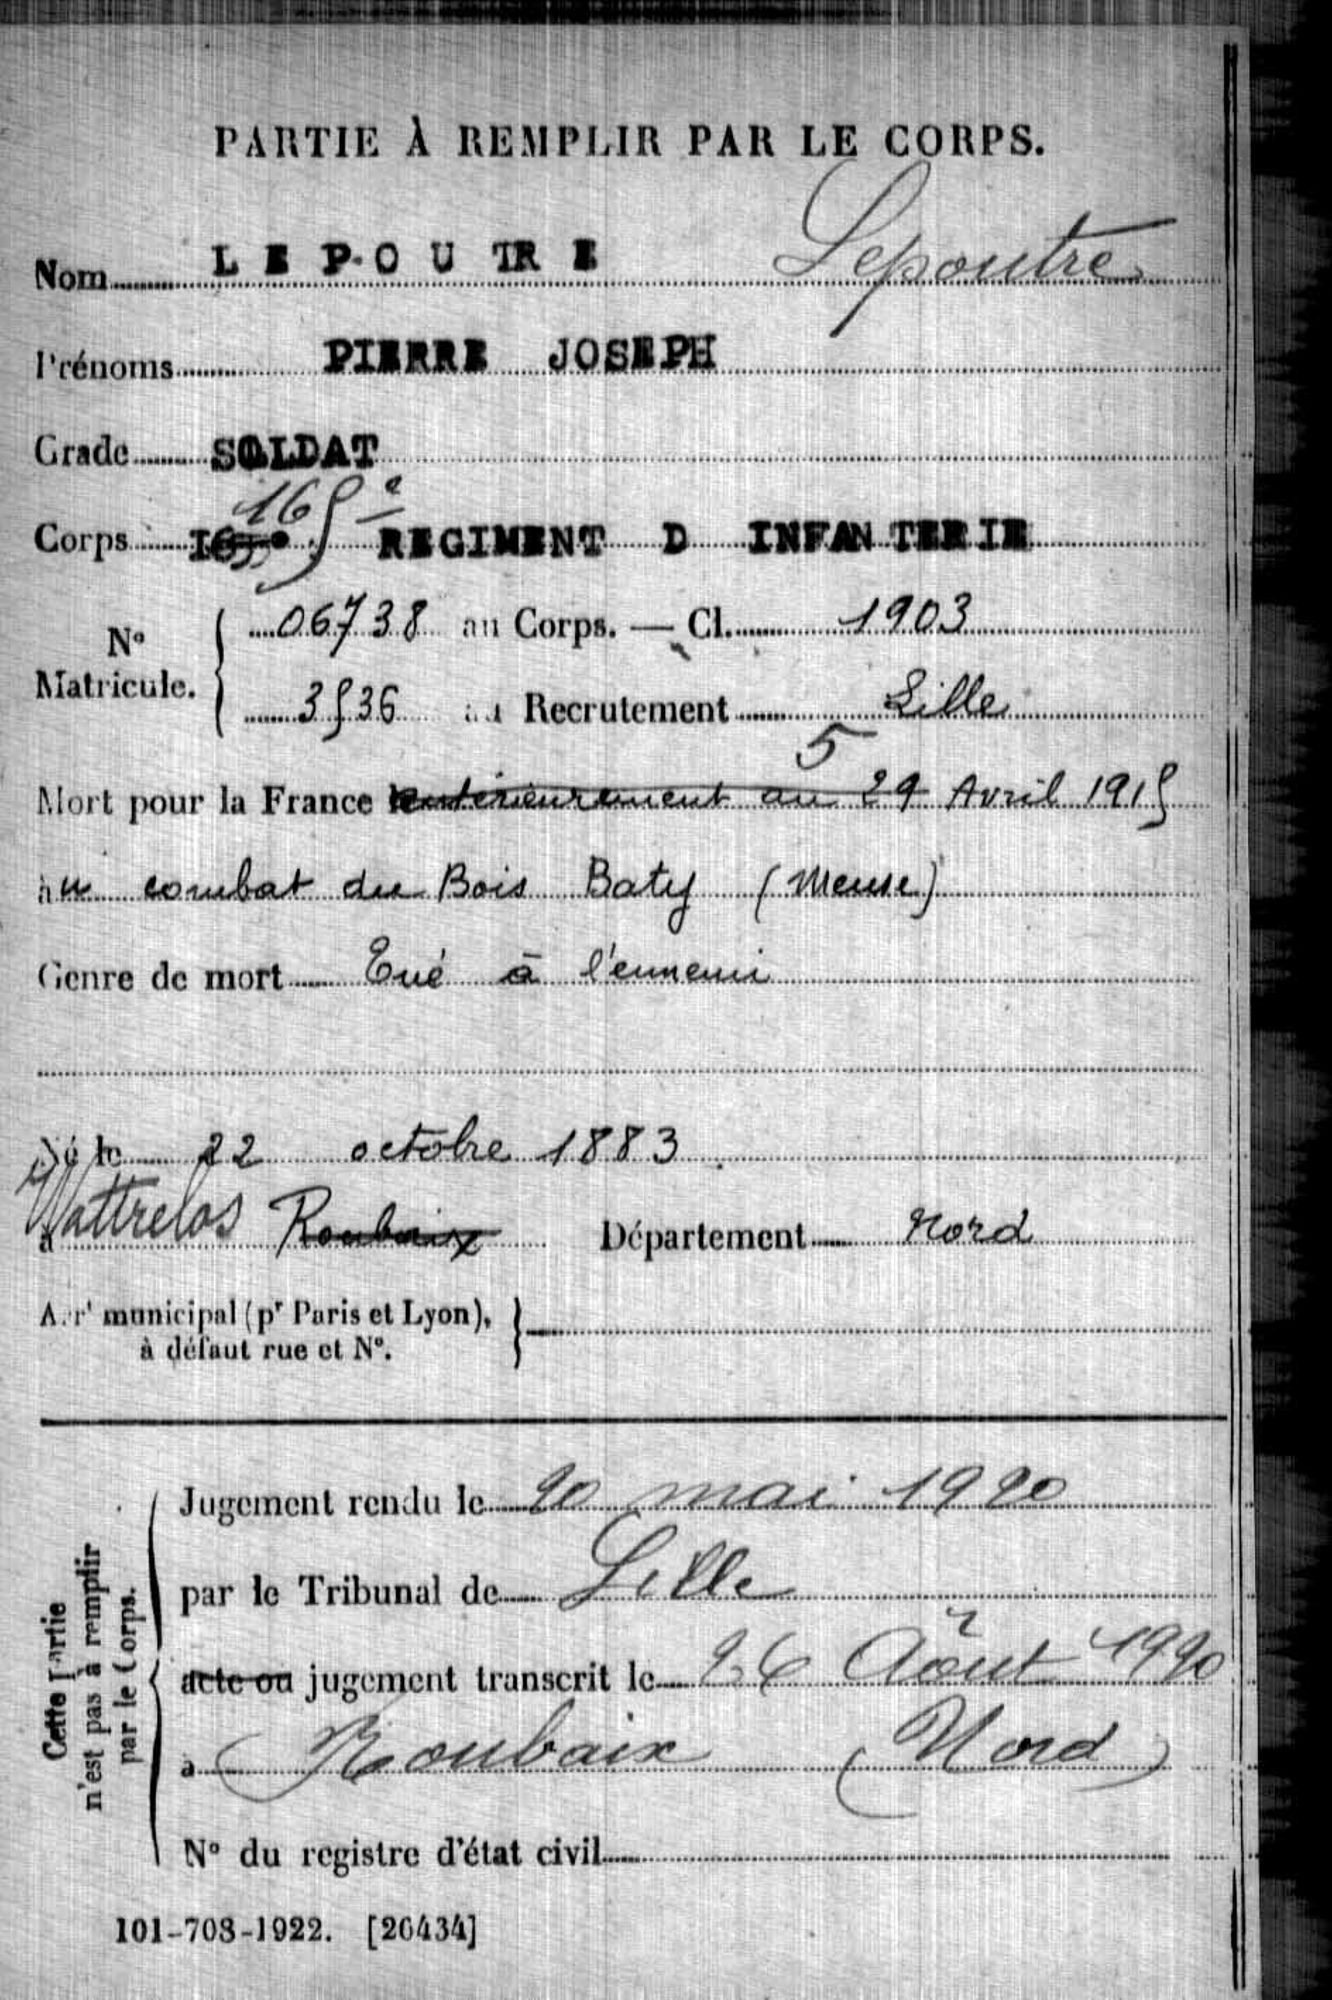 PARTIE À REMPLIR PAR LE CORPS.
Nom LEPOUTRE Lepoutre
Prénoms PIERRE JOSEPH
Grade SOLDAT
165e
Corps REGIMENT D INFANTERIE
N° Matricule. 06738 au Corps. — Cl. 1903
3536 au Recrutement Lille
5
Mort pour la France le antérieurement au 29 Avril 1915
au combat du Bois Baty (Meuse)
Genre de mort Tué à l'ennemi
Né le 22 octobre 1883
à Wattrelos Roubaix Département Nord
Arrt municipal (pr Paris et Lyon),
à défaut rue et N°.
Cette Partie
n'est pas à remplir
par le Corps.
Jugement rendu le 20 mai 1920
par le Tribunal de Lille
acte ou jugement transcrit le 26 Août 1920
à Roubaix (Nord)
N° du registre d'état civil
101-708-1922. [26434]